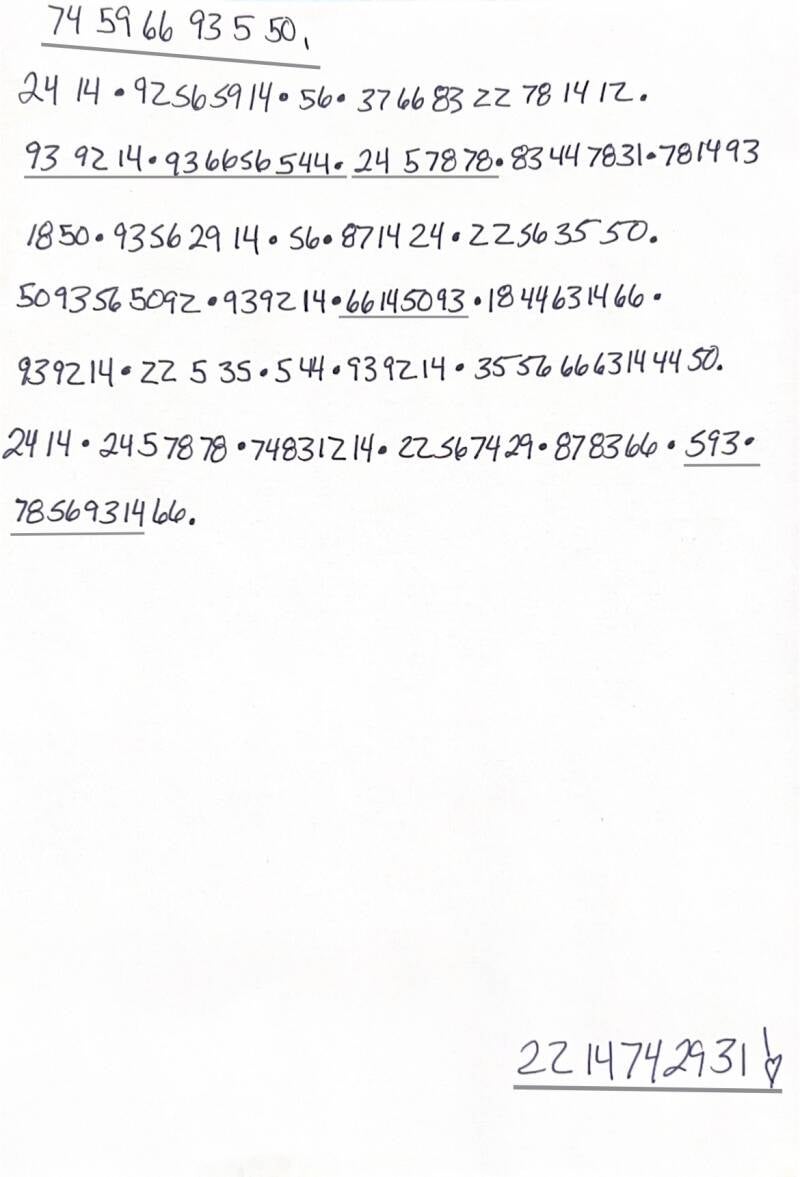 74 59 66 93 5 50,
24 14 • 92565914 • 56 • 37 66 83 22 78 14 12.
93 92 14 • 936656544. 24 57878 • 83447831 • 781493
1850 • 93562914 • 56 • 871424 • 22563550.
5093565092 • 939214 • 66145093 • 1844631466 •
939214 • 22 5 35 • 544 • 939214 • 355666631444 50.
2414 • 2457878 • 74831214 • 22567429 • 878366 • 593 •
7856931466.
2214742931!